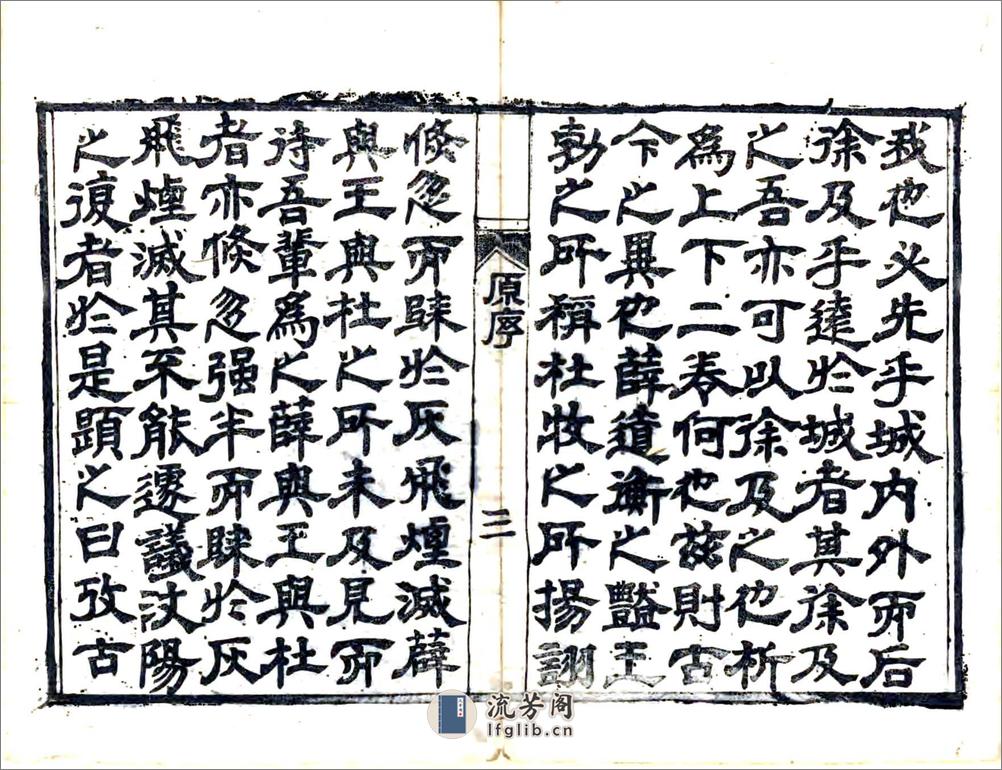 我也必先乎城内外而后
徐及乎遠於城者其徐及
之吾亦可以徐及之也析
為上下二卷何也茲則古
今之異也薛道衡之豔王
勃之所稱杜牧之所揚詡
原序
三
倏忽而歸於灰飛煙滅薛
與王與杜之所未及見而
待吾輩為之薛與王與杜
者亦倏忽强半而歸於灰
飛煙滅其不能遽議汶陽
之復者於是題之曰攷古
流芳阁
lfglib.cn